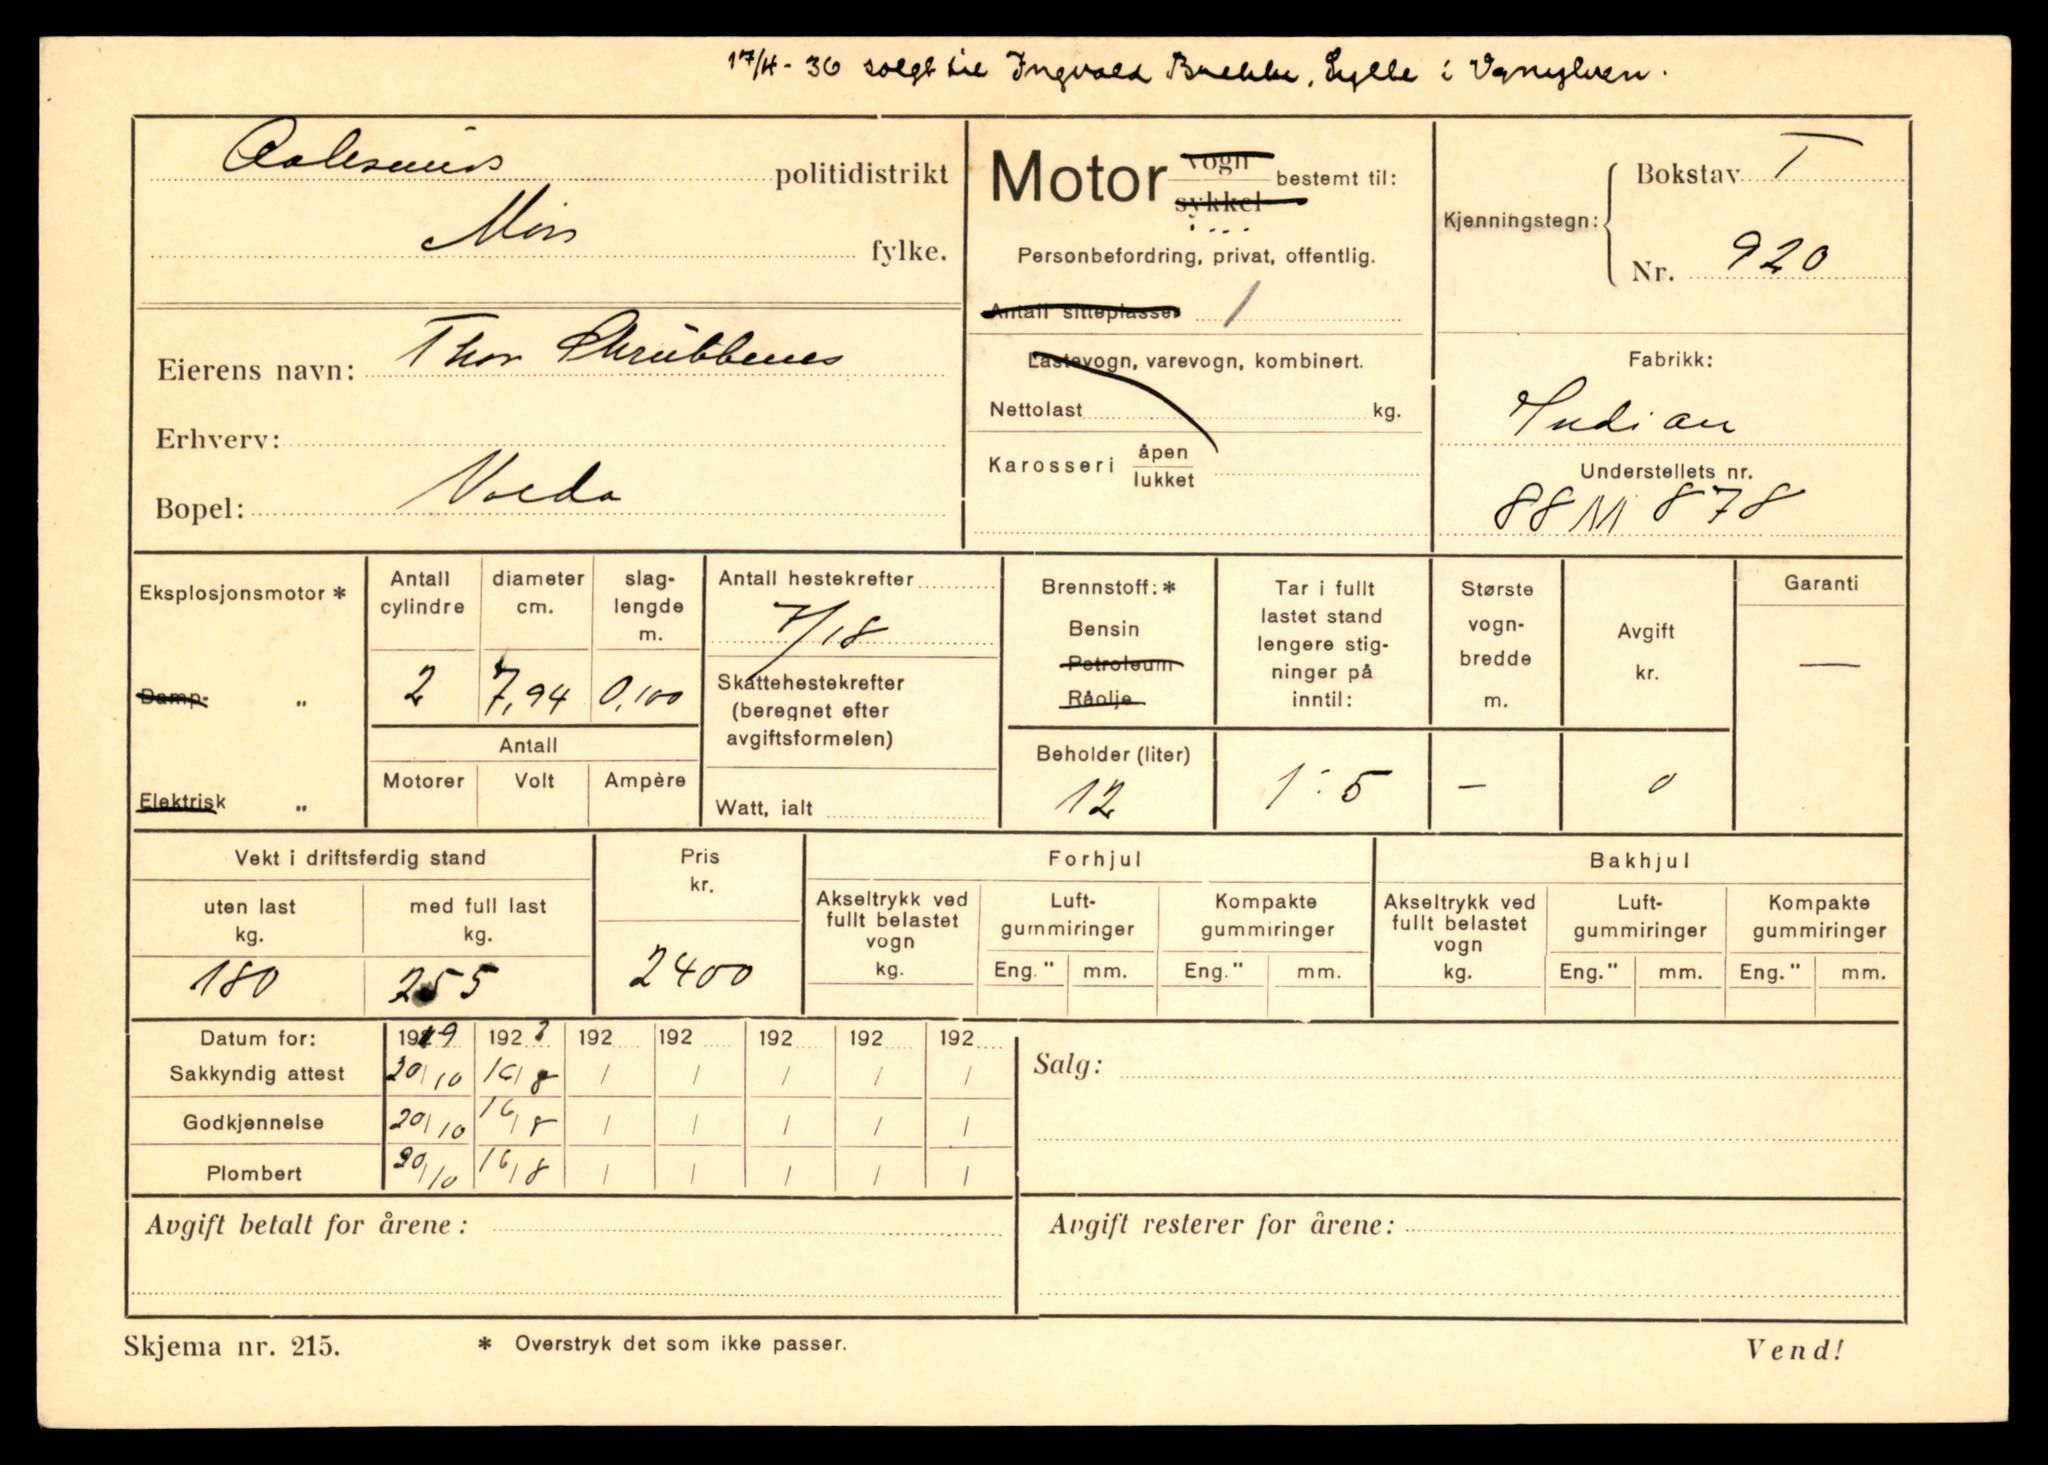 17/4 - 30 solgt til Ingvald Brekke, Sylte i Vanylven.
Aalesunds politidistrikt
Møre fylke.
Eierens navn: Thor Skrubbenes
Erhverv:
Bopel: Volda
Motor vogn sykkel bestemt til:
Personbefordring, privat, offentlig.
Antall sitteplasser 1
Lastevogn, varevogn, kombinert.
Nettolast kg.
Karosseri åpen lukket
Kjenningstegn: Bokstav T
Nr. 920
Fabrikk:
Indian
Understellets nr.
88 M 878
Eksplosjonsmotor *
Damp- „
Elektrisk „
Antall cylindre
2
diameter cm.
7,94
slaglengde m.
0,100
Antall
Motorer Volt Ampère
Antall hestekrefter
7/18
Skattehestekrefter
(beregnet efter
avgiftsformelen)
Watt, ialt
Brennstoff: *
Bensin
Petroleum
Råolje
Beholder (liter)
12
Tar i fullt
lastet stand
lengere stig-
ninger på
inntil:
1:5
Største
vogn-
bredde
m.
—
Avgift
kr.
0
Garanti
—
Vekt i driftsferdig stand
uten last kg.
180
med full last kg.
255
Pris
kr.
2400
Forhjul
Akseltrykk ved
fullt belastet
vogn
kg.
Luft-
gummiringer
Eng." mm.
Kompakte
gummiringer
Eng." mm.
Bakhjul
Akseltrykk ved
fullt belastet
vogn
kg.
Luft-
gummiringer
Eng." mm.
Kompakte
gummiringer
Eng." mm.
Datum for: 1919 192 192 192 192 192 192
Sakkyndig attest 20/10 16/8 / / / / /
Godkjennelse 20/10 16/8 / / / / /
Plombert 20/10 16/8 / / / / /
Salg:
Avgift betalt for årene:
Avgift resterer for årene:
Skjema nr. 215.
* Overstryk det som ikke passer.
Vend!